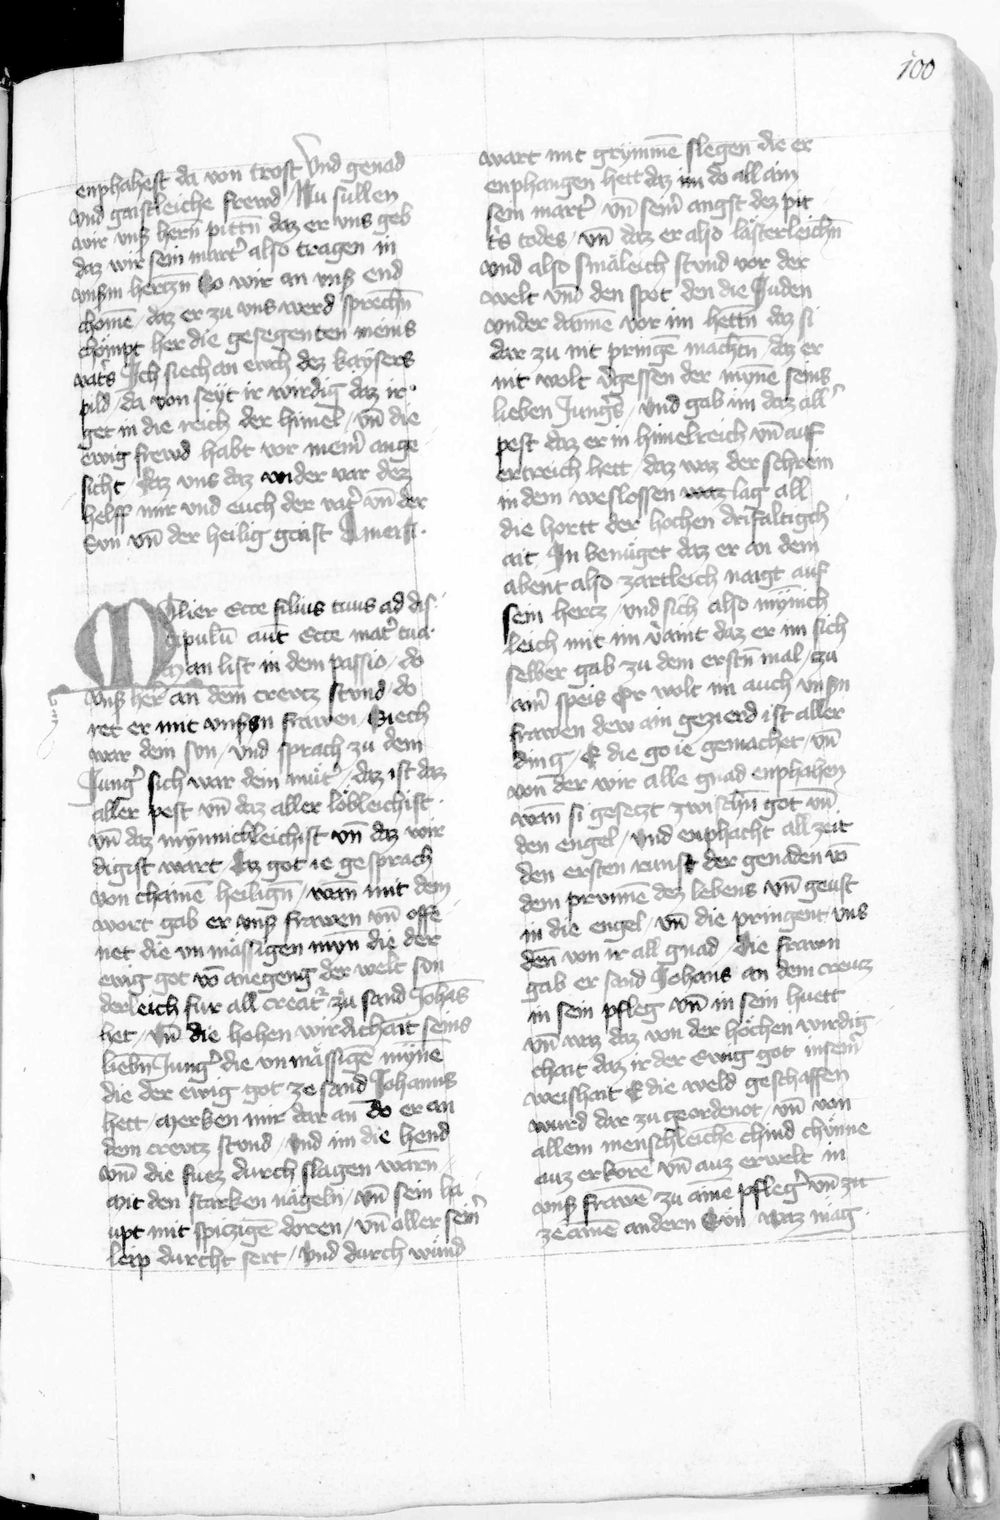 100
enphahest da von trost Vnd genad
vnd gaistleiche frewd / Nu sullen
wir vnß hern̄ pittn̄ daz er vns geb
daz wir sein mart͛ also tragen in
vnßm hertzn̄ So wir an vnß end
chomē / daz er zu vns werd sprechn̄
chömpt her die gesegenten meins
vat͛s Ich siech an ewch dez kaysers
pild / da von seyt ir wirdig daz ir
get in die reich der himel / vn̄ die
ewig frewd habt vor mein͛ ange
sicht / daz vns daz wider var dez
helff mir vnd euch der vat͛ vn̄ der
Svn vn̄ der heilig geist Amen
Mulier Ecce filius tuus ad dis
cipulū aut̄ Ecce mat͛ tua
Man list in dem passio / do
vnß her an dem crewtz stvnd do
ret er mit vnßn frawen / Siech
war dem svn / vnd sprach zu dem
Jung͛ sich war dem müt͛ / daz ist daz
aller pest vn̄ daz aller löbleichist
vn̄ daz mynnichleichist vn̄ daz wir
digist wart / daz got ie gesprach
von chainē heilign̄ / wan mit dem
wort gab er vnß frawen vn̄ offe
net die vnmässigen myn̄ die der
ewig got vō anegeng der welt svn
derleich fur all creat͛ zu sand Johās
het / vn̄ die hohen wirdichait seins
liebn̄ Jung͛ die vnmässigē mynē
die der ewig got ze sand Johanns
hett / Merken mir dar an do er an
dem crewtz stvnd / vnd im die hend
vn̄ die fuez durch slagen warn̄
Mit den starken nageln / vn̄ sein ha
upt mit spiczigē doren / vn̄ aller sein͛
leip durcht fert / vnd durch wund
wart mit grymmē slegen die er
enphangen hett daz im do all ain
sein mart͛ vn̄ sein͛ angst dez pit
t͛s todes / vn̄ daz er also lästerleichn̄
vnd also smäleich stvnd vor der
welt vnd den spot den die Juden
vnder dannē vor im hettn̄ daz si
dar zu nit pringē machtn̄ / daz er
nit wolt v͛gessen der mynē seins
lieben Jung͛s / vnd gab im daz all͛
pest daz er in himelreich vn̄ auf
ertreich hett / daz waz der schrein
in dem weslossen waz lag all
die hortt der hochen drifaltigch
ait / In benüget daz er an dem
abent also zartleich naigt auf
sein hercz / vnd sich also mynich
leich mit im v͛aint daz er im sich
selber gab zu dem erstn̄ mal / zu
ain͛ speis Er wolt im auch vnßn
frawen dew ain gezierd ist aller
ding / E die go ie gemachet / vn̄
von der wir alle gnad enphahen
wan̄ si gesetzt zwischn̄ got vn̄
den engel / vnd enphacht all zeit
den ersten runst der genaden vō
dem prvnnē dez lebens vn̄ geust
in die engel / vn̄ die pringent vns
den̄ von ir all gnad / die frawn
gab er sand Johans an dem creutz
in sein pfleg vn̄ in sein huett
vn̄ waz daz von der höchen wirdig
chait daz ir der Ewig got in sein͛
weishait E die weld geschaffen
wurd dar zu geordenot / vn̄ von
allem menschleichē chind chünne
auz erkorē vn̄ auz erwelt in
vnß frawē zu ainē pfleg͛ vn̄ zu
ze ainē anderen Svn / waz mag